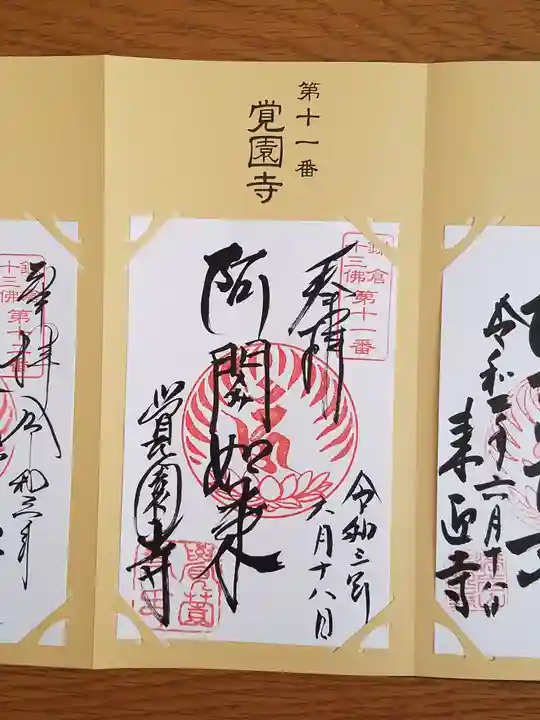 第十一番
覚園寺
鎌倉
十三佛第十一番
奉拝
阿閦如来
覚園寺
令和三年
六月十八日
十三佛第十二番
奉拝
令和三年
六月十八日
来迎寺